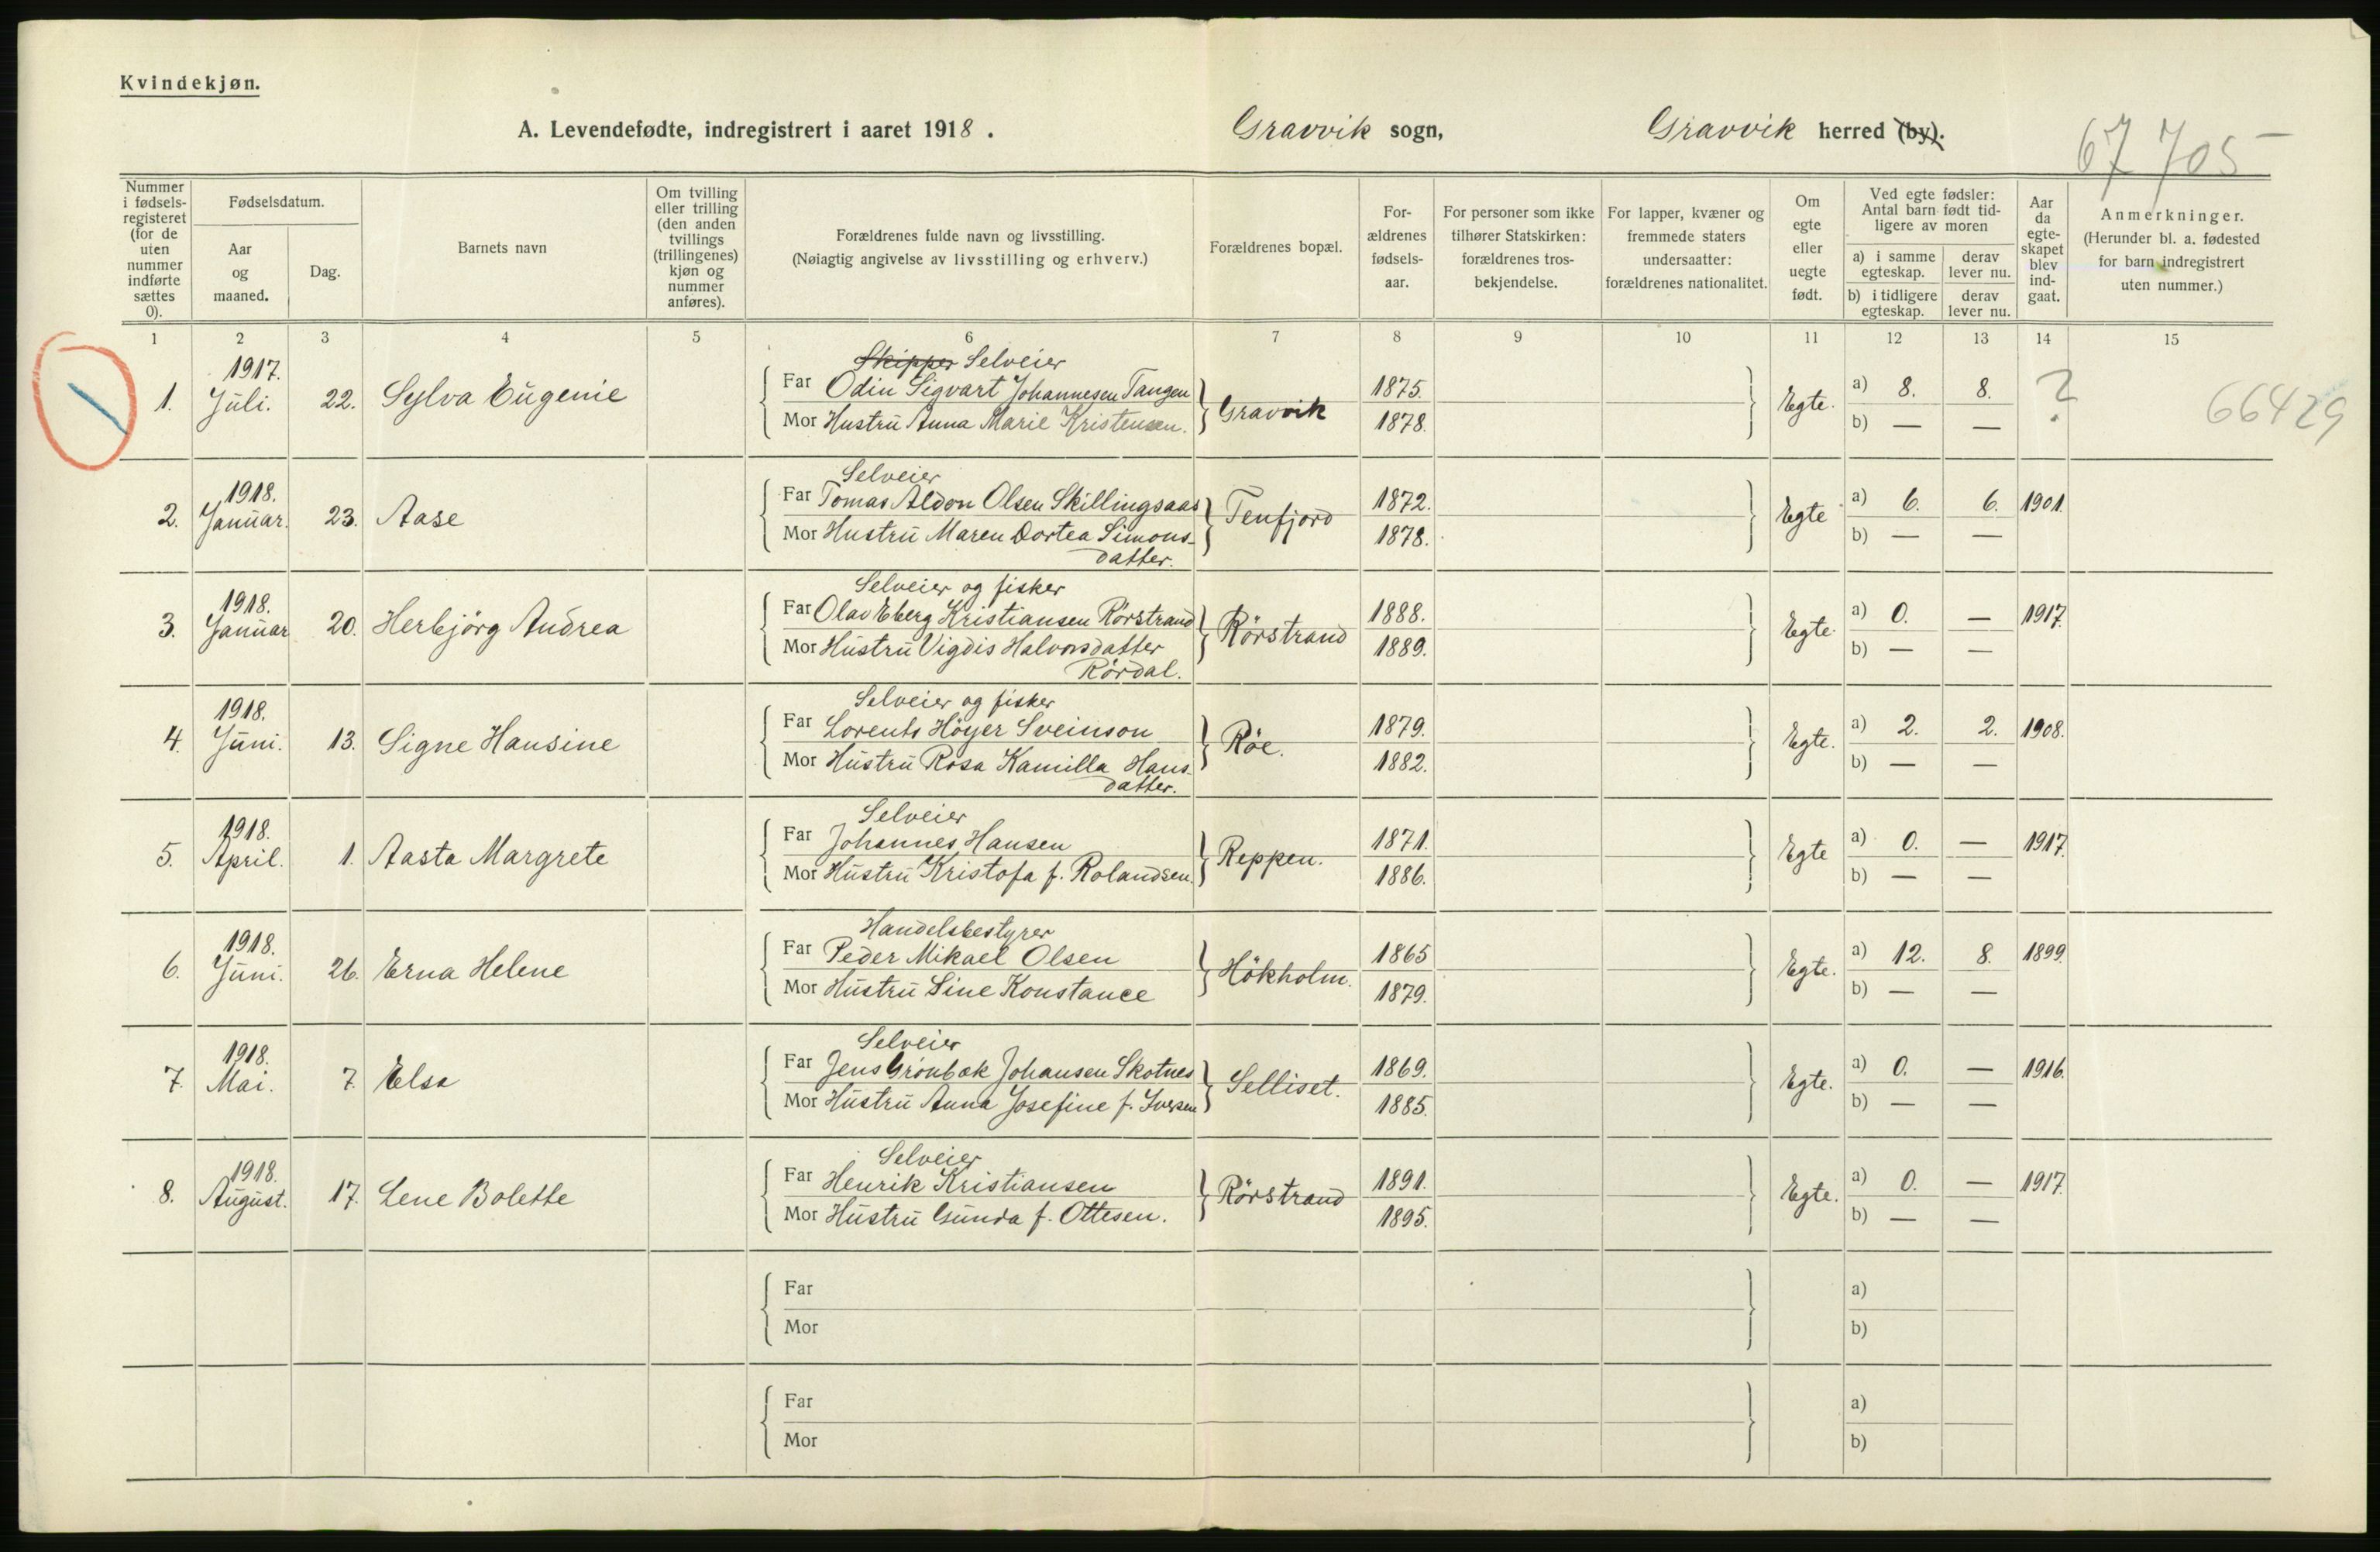 Kvindekjøn.
A. Levendefødte, indregistrert i aaret 1918. Gravvik sogn, Gravvik herred (by).
67 705
Nummer i fødselsregisteret (for de uten nummer indførte sættes 0).
Fødselsdatum.
Aar og maaned.
Dag.
Barnets navn
Om tvilling eller trilling (den anden tvillings (trillingenes) kjøn og nummer anføres).
Forældrenes fulde navn og livsstilling.
(Nøiagtig angivelse av livsstilling og erhverv.)
Forældrenes bopæl.
For-ældrenes fødsels-aar.
For personer som ikke tilhører Statskirken: forældrenes tros-bekjendelse.
For lapper, kvæner og fremmede staters undersaatter: forældrenes nationalitet.
Om egte eller uegte født.
Ved egte fødsler: Antal barn født tid-ligere av moren
a) i samme egteskap.
derav lever nu.
b) i tidligere egteskap.
derav lever nu.
Aar da egte-skapet blev ind-gaat.
Anmerkninger.
(Herunder bl. a. fødested for barn indregistrert uten nummer.)
1 2 3 4 5 6 7 8 9 10 11 12 13 14 15
Skipper Selveier
1. 1917. Juli. 22. Sylva Eugenie Far Odin Sigvart Johannesen Tangen Gravvik 1875. Egte. a) 8. 8. ? 66429
Mor Hustru Anna Marie Kristensen. 1878. b) — —
Selveier
2. 1918. Januar. 23. Aase Far Tomas Aldon Olsen Skillingsaas Tenfjord 1872. Egte a) 6. 6. 1901.
Mor Hustru Maren Dortea Simons-datter. 1878. b) — —
Selveier og fisker
3. 1918. Januar 20. Herbjörg Andrea Far Olav Eberg Kristiansen Rörstrand Rörstrand 1888. Egte. a) 0. — 1917.
Mor Hustru Vigdis Halvorsdatter Rördal. 1889. b) — —
Selveier og fisker
4. 1918. Juni. 13. Signe Hansine Far Lorents Höyer Sveinson Röe. 1879. Egte. a) 2. 2. 1908.
Mor Hustru Rosa Kamilla Hans-datter. 1882. b) — —
Selveier
5. 1918. April. 1. Aasta Margrete Far Johannes Hansen Reppen. 1871. Egte a) 0. — 1917.
Mor Hustru Kristofa f. Rolandsen. 1886. b) — —
Handelsbestyrer
6. 1918. Juni. 26. Erna Helene Far Peder Mikael Olsen Hökholm. 1865 Egte. a) 12. 8. 1899.
Mor Hustru Line Konstance 1879. b) — —
Selveier
7. 1918. Mai. 7. Elsa Far Jens Grönbæk Johansen Skotnes Selliset. 1869. Egte. a) 0. — 1916.
Mor Hustru Anna Josefine f. Iversen 1885. b) — —
Selveier
8. 1918. August. 17. Lene Bolette Far Henrik Kristiansen Rörstrand 1891. Egte. a) 0. — 1917.
Mor Hustru Gunda f. Ottesen. 1895. b) — —
Far a)
Mor b)
Far a)
Mor b)